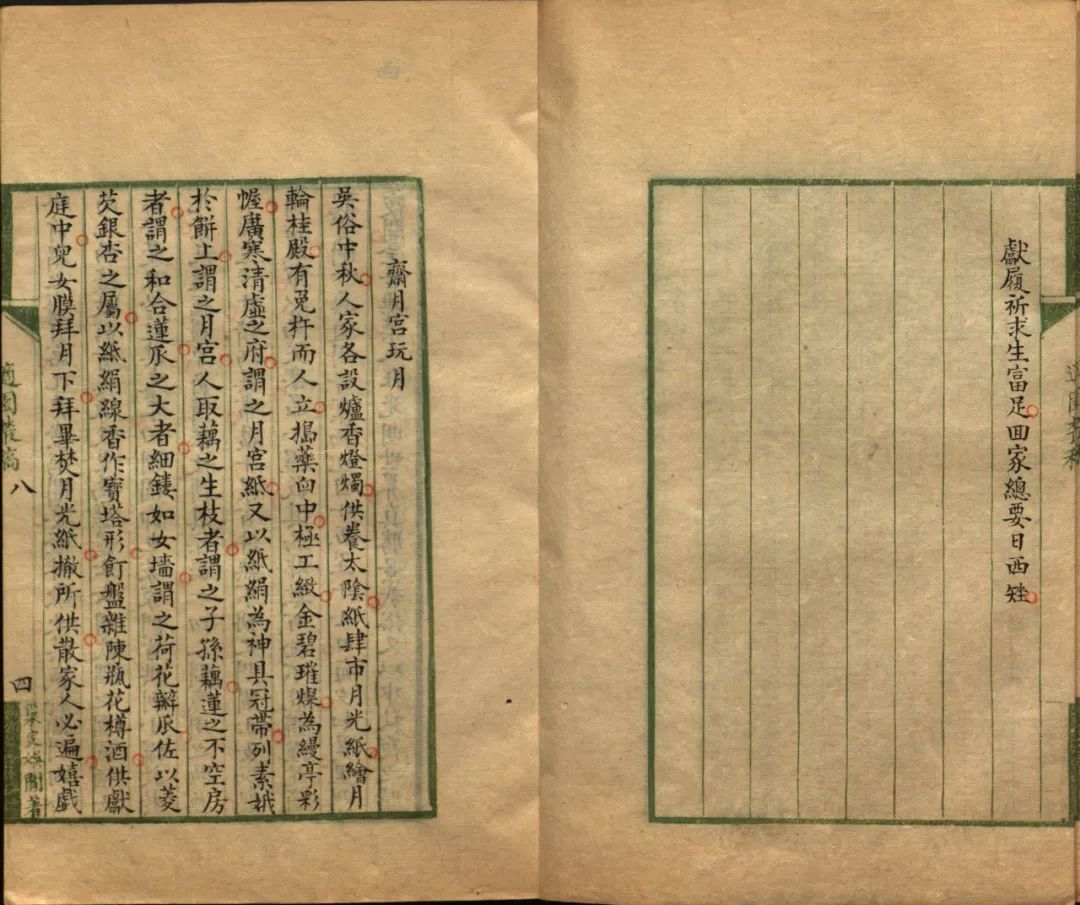 獻履祈求生富足回家總要日西矬
齋月宮玩月
吳俗中秋人家各設爐香燈燭供養太陰紙肆市月光紙繪月
輪桂殿有兔杵而人立搗藥臼中極工緻金碧璀燦為縵亭彩
幄廣寒清虛之府謂之月宮紙又以紙絹為神具冠帶列素娥
於餅上謂之月宮人取藕之生枝者謂之子孫藕蓮之不空房
者謂之和合蓮瓜之大者細鏤如女墻謂之荷花瓣瓜佐以菱
芡銀杏之屬以紙絹線香作寶塔形飣盤雜陳瓶花樽酒供獻
庭中兒女膜拜月下拜畢焚月光紙撤所供散家人必遍嬉戲
適園叢稿
八
四